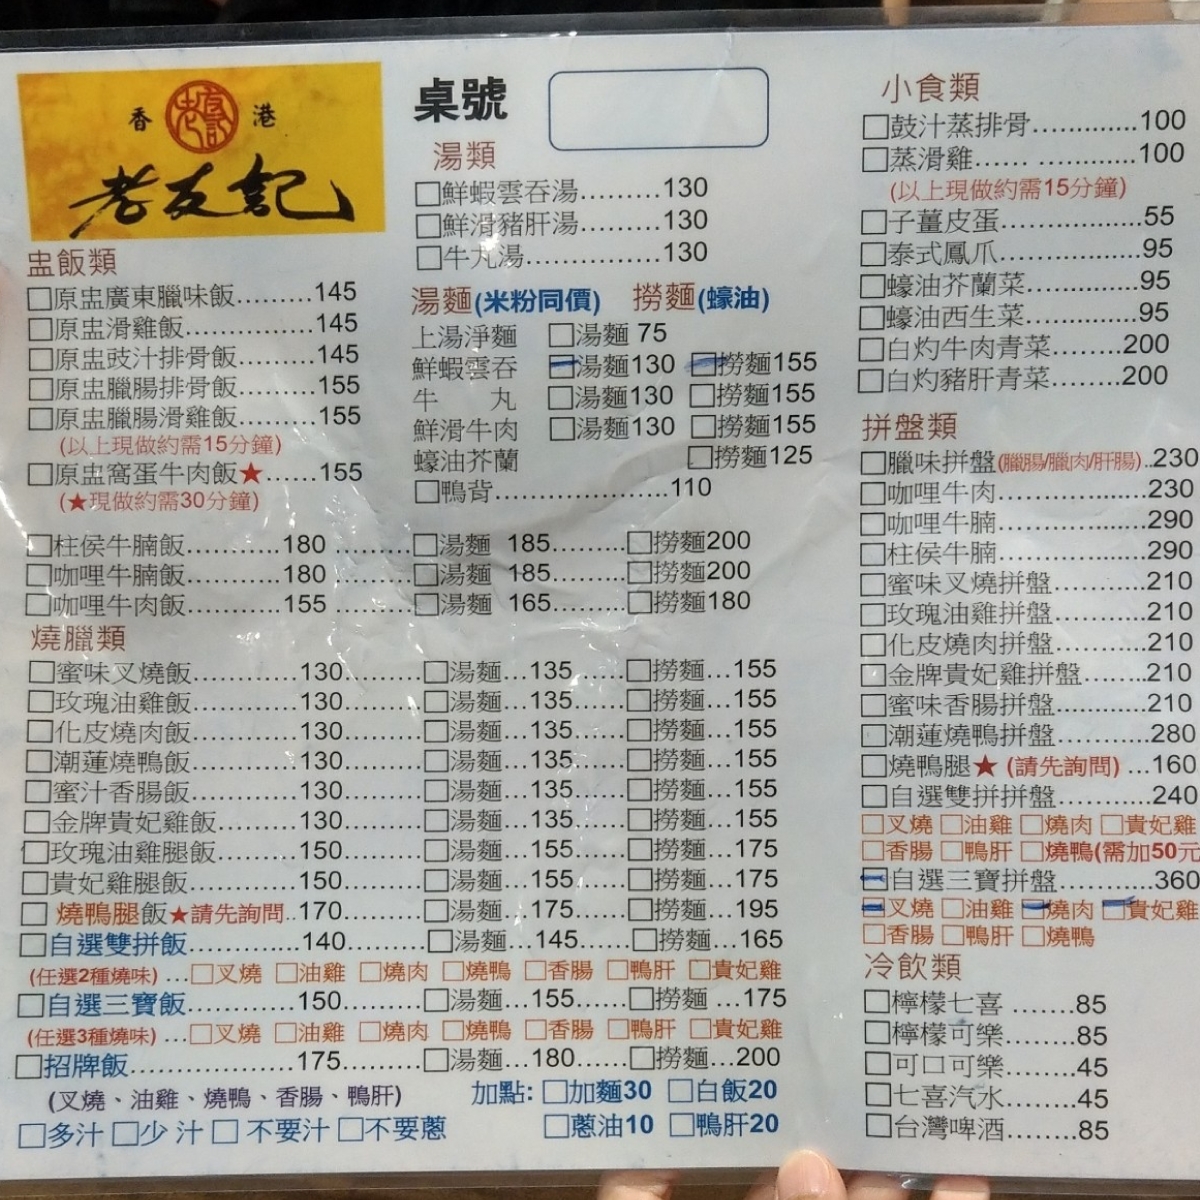 香 港
老友記
盅飯類
□原盅廣東臘味飯.........145
□原盅滑雞飯...............145
□原盅豉汁排骨飯.........145
□原盅臘腸排骨飯.........155
□原盅臘腸滑雞飯.........155
(以上現做約需15分鐘)
□原盅窩蛋牛肉飯★......155
(★現做約需30分鐘)
桌號
湯類
□鮮蝦雲吞湯.........130
□鮮滑豬肝湯.........130
□牛丸湯...............130
湯麵(米粉同價) 撈麵(蠔油)
上湯淨麵 □湯麵 75
鮮蝦雲吞 □湯麵130 □撈麵155
牛 丸 □湯麵130 □撈麵155
鮮滑牛肉 □湯麵130 □撈麵155
蠔油芥蘭 □撈麵125
□鴨背......................110
□柱侯牛腩飯...........180 .........□湯麵 185.........□撈麵200
□咖哩牛腩飯...........180 .........□湯麵 185.........□撈麵200
□咖哩牛肉飯...........155 .........□湯麵 165.........□撈麵180
燒臘類
□蜜味叉燒飯.............130..........□湯麵...135......□撈麵...155
□玫瑰油雞飯.............130..........□湯麵...135......□撈麵...155
□化皮燒肉飯.............130..........□湯麵...135......□撈麵...155
□潮蓮燒鴨飯.............130..........□湯麵...135......□撈麵...155
□蜜汁香腸飯.............130..........□湯麵...135......□撈麵...155
□金牌貴妃雞飯..........130..........□湯麵...135......□撈麵...155
□玫瑰油雞腿飯..........150..........□湯麵...155......□撈麵...175
□貴妃雞腿飯.............150..........□湯麵...155......□撈麵...175
□ 燒鴨腿飯★請先詢問..170..........□湯麵...175......□撈麵...195
□自選雙拼飯..............140..........□湯麵...145......□撈麵...165
(任選2種燒味) ...□叉燒 □油雞 □燒肉 □燒鴨 □香腸 □鴨肝 □貴妃雞
□自選三寶飯..............150..........□湯麵...155......□撈麵 ...175
(任選3種燒味) ...□叉燒 □油雞 □燒肉 □燒鴨 □香腸 □鴨肝 □貴妃雞
□招牌飯.....................175..........□湯麵...180......□撈麵...200
(叉燒、油雞、燒鴨、香腸、鴨肝)
加點: □加麵30 □白飯20
□多汁 □少 汁 □ 不要汁 □不要蔥
□蔥油10 □鴨肝20
小食類
□鼓汁蒸排骨.............100
□蒸滑雞...... ............100
(以上現做約需15分鐘)
□子薑皮蛋.................55
□泰式鳳爪.................95
□蠔油芥蘭菜..............95
□蠔油西生菜..............95
□白灼牛肉青菜........200
□白灼豬肝青菜........200
拼盤類
□臘味拼盤(臘腸/臘肉/肝腸)..230
□咖哩牛肉..................230
□咖哩牛腩..................290
□柱侯牛腩..................290
□蜜味叉燒拼盤............210
□玫瑰油雞拼盤............210
□化皮燒肉拼盤............210
□金牌貴妃雞拼盤........210
□蜜味香腸拼盤............210
□潮蓮燒鴨拼盤............280
□燒鴨腿★ (請先詢問) ...160
□自選雙拼拼盤............240
□叉燒 □油雞 □燒肉 □貴妃雞
□香腸 □鴨肝 □燒鴨(需加50元
□自選三寶拼盤............360
□叉燒 □油雞 □燒肉 □貴妃雞
□香腸 □鴨肝 □燒鴨
冷飲類
□檸檬七喜 .......85
□檸檬可樂.........85
□可口可樂.........45
□七喜汽水.........45
□台灣啤酒.........85